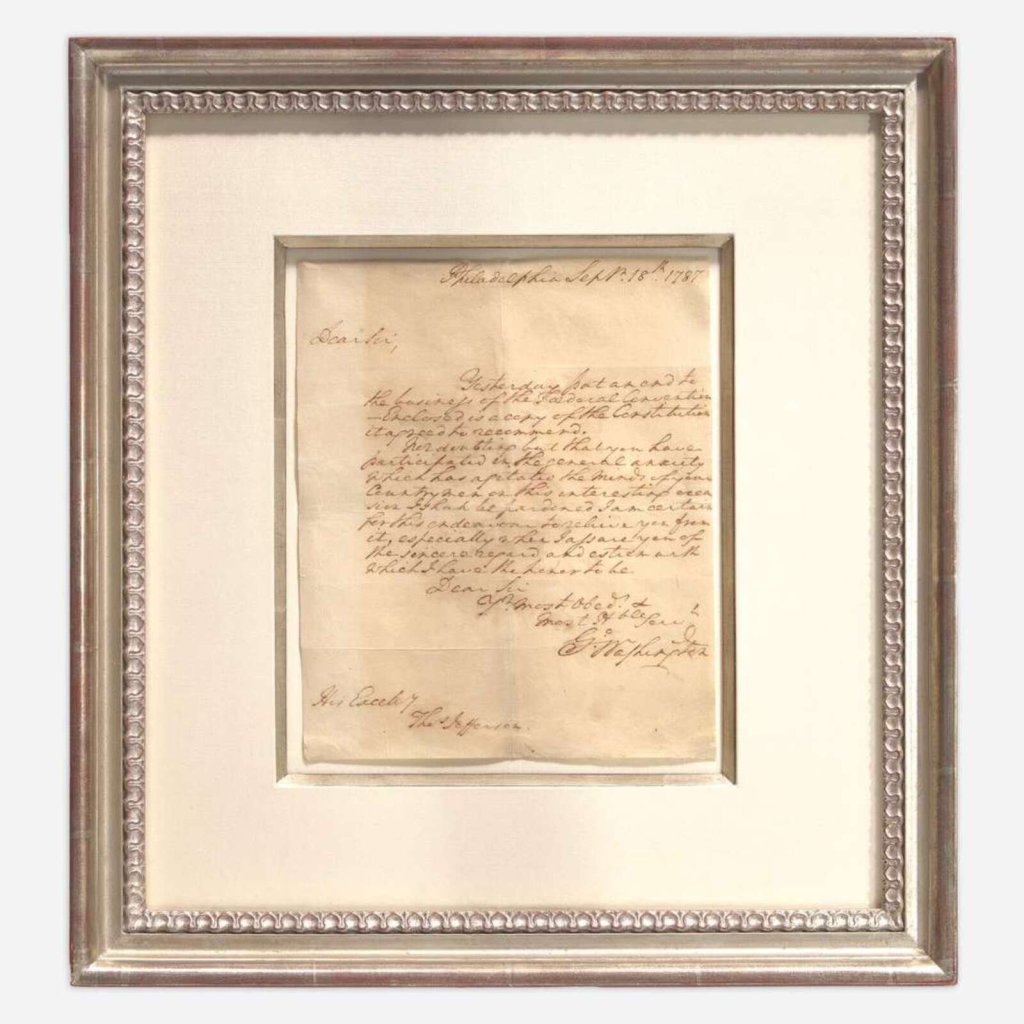 Philadelphia Sept.r 18th 1787
Dear Sir,
Yesterday put an end to
the business of the Fœderal Convention
—Enclosed is a copy of the Constitution
it agreed to recommend.
Not doubting but that you have
participated in the general anxiety
which has agitated the minds of your
Countrymen on this interesting occa
sion I shall be pardoned I am certain
for this endeavour to relieve you from
it, especially when I assure you of
the sincere regard and esteem with
which I have the honor to be
Dear Sir
Yr. most Obedt. &
most Hble Servt
Go. Washington
His Excely
Thos. Jefferson.